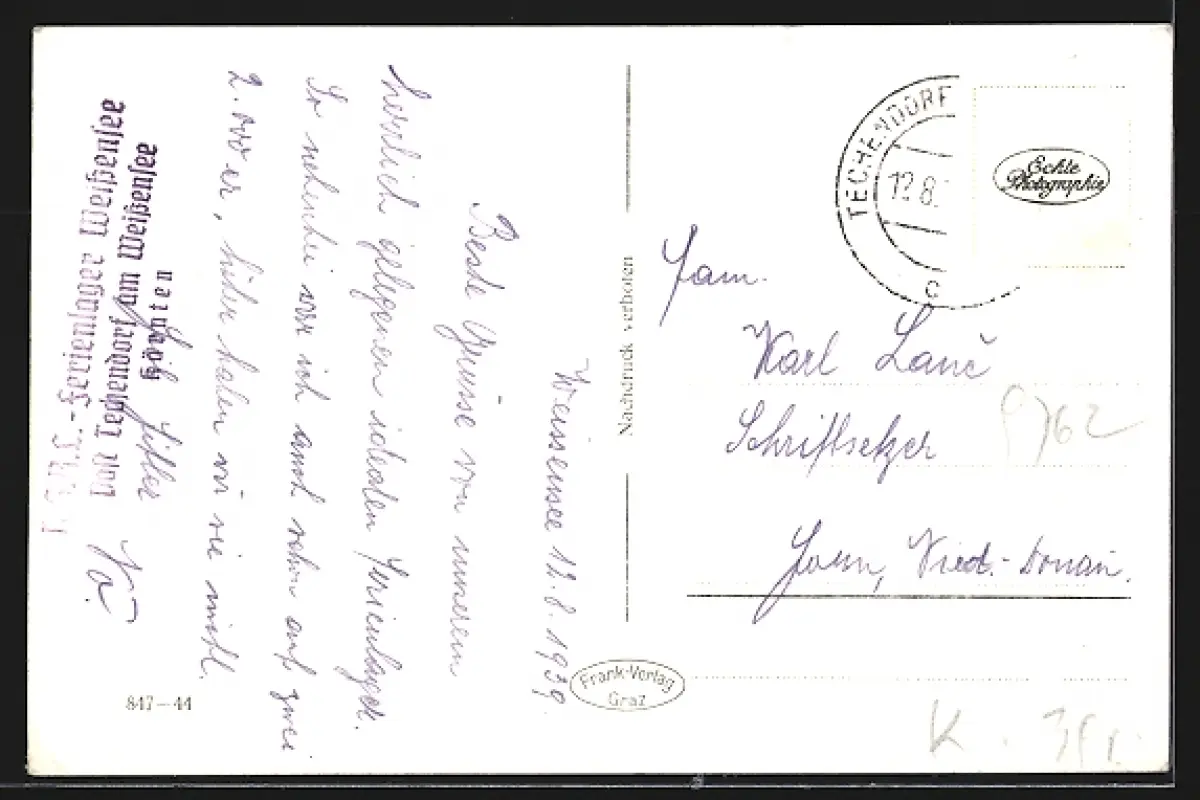 Weissensee 12.8.1939.
Beste Grüsse von unserem
herrlich gelegenen idealen Ferienlager.
So nebenbei war ich auch schon auf zwei
2.000 er, höher haben wir sie nicht.
Heil Hitler
-Ferienlager Weißensee
Post Techendorf am Weißensee
Kärnten
847-44
Nachdruck verboten
Frank-Verlag
Graz
TECHENDORF
12.8.
C
Echte
Photographie
Fam.
Karl Lanč
Schriftsetzer
Horn, Nied.-Donau.
K.